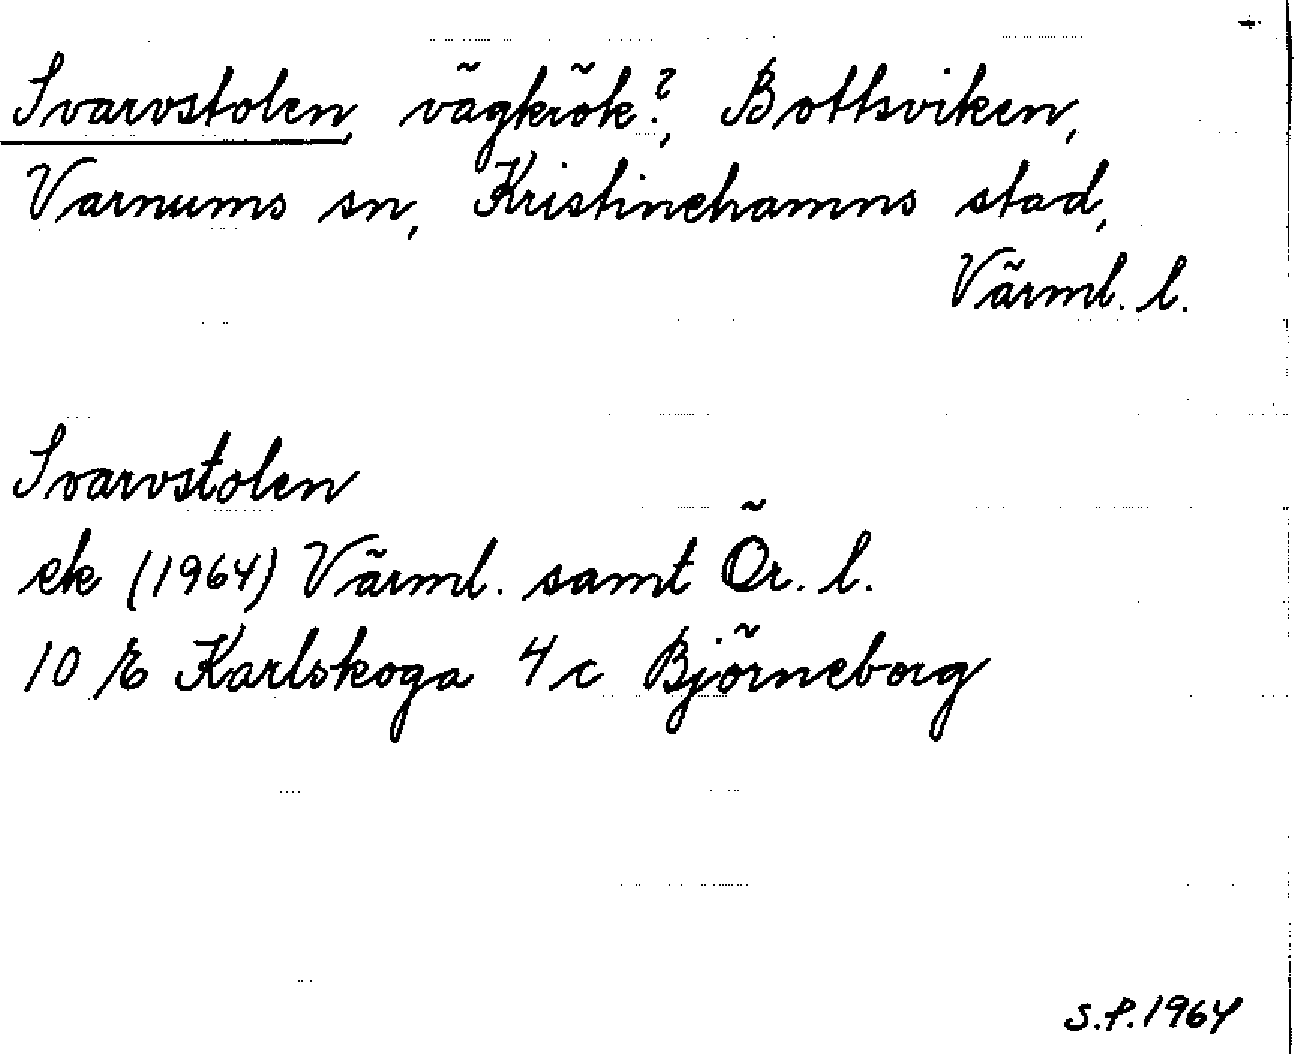 Svarvstolen, vägkrök?, Bottsviken,
Varnums sn, Kristinehamns stad,
Värml. l.
Svarvstolen
ek (1964) Värml. samt Ör. l.
10 E Karlskoga 4c Björneborg
S.P. 1964